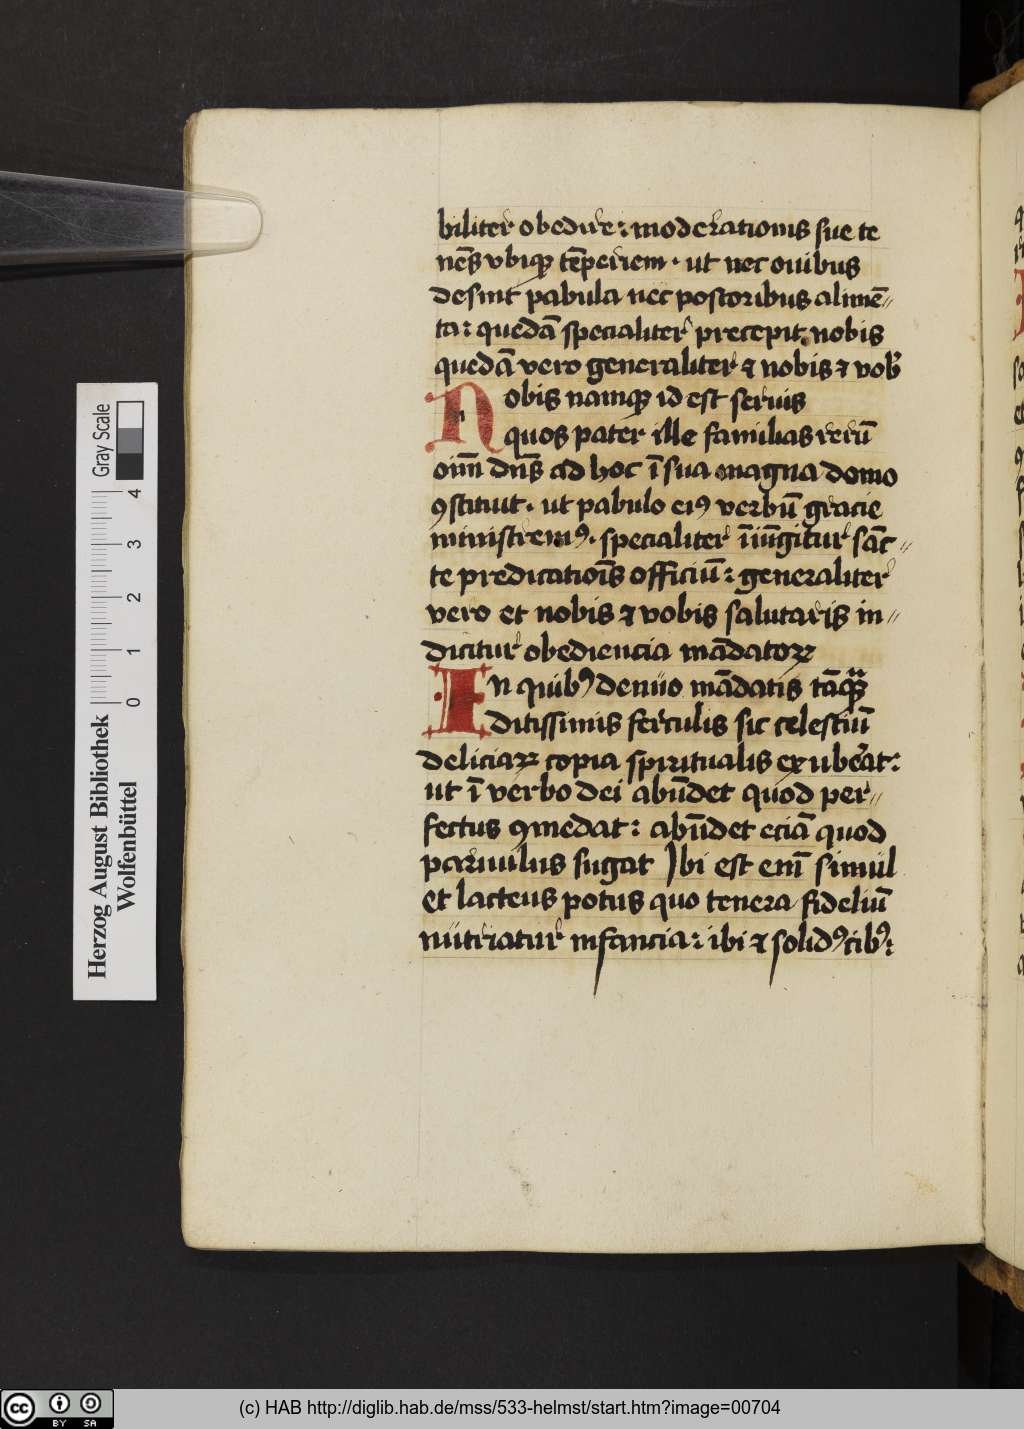 biliter obedire: moderationis sue te
nēs vbiqꝫ tēperiem · ut nec ouibus
desint pabula nec pastoribus alimē〃
ta: quedā specialiter precepit nobis
quedā vero generaliter ⁊ nobis ⁊ vob̾
Nobis namqꝫ id est seruis
quos pater ille familias rerū
oīm dn̄s ad hoc ī sua magna domo
ꝯstituit · ut pabulo eiꝰ verbū gracie
ministremꝰ · specialiter īiūgitur sāc〃
te predicatiōis officiū: generaliter
vero et nobis ⁊ vobis salutaris in〃
dicitur obediencia mādatoꝝ
In quibꝰ denīio mādatis tāqꝫ
ditissimis ferculis sic celestiū
deliciaꝝ copia spiritualis exuberat:
ut ī verbo dei abūdet quod per〃
fectus ꝯmedat: abūdet eciā quod
paruulus sugat Ibi est enī simul
et lacteus potus quo tenera fideliū
nutriatur infancia: ibi ⁊ solidꝰ cibꝰ:
Herzog August Bibliothek
Wolfenbüttel
0 1 2 3 4
Gray Scale
cc BY SA
(c) HAB http://diglib.hab.de/mss/533-helmst/start.htm?image=00704